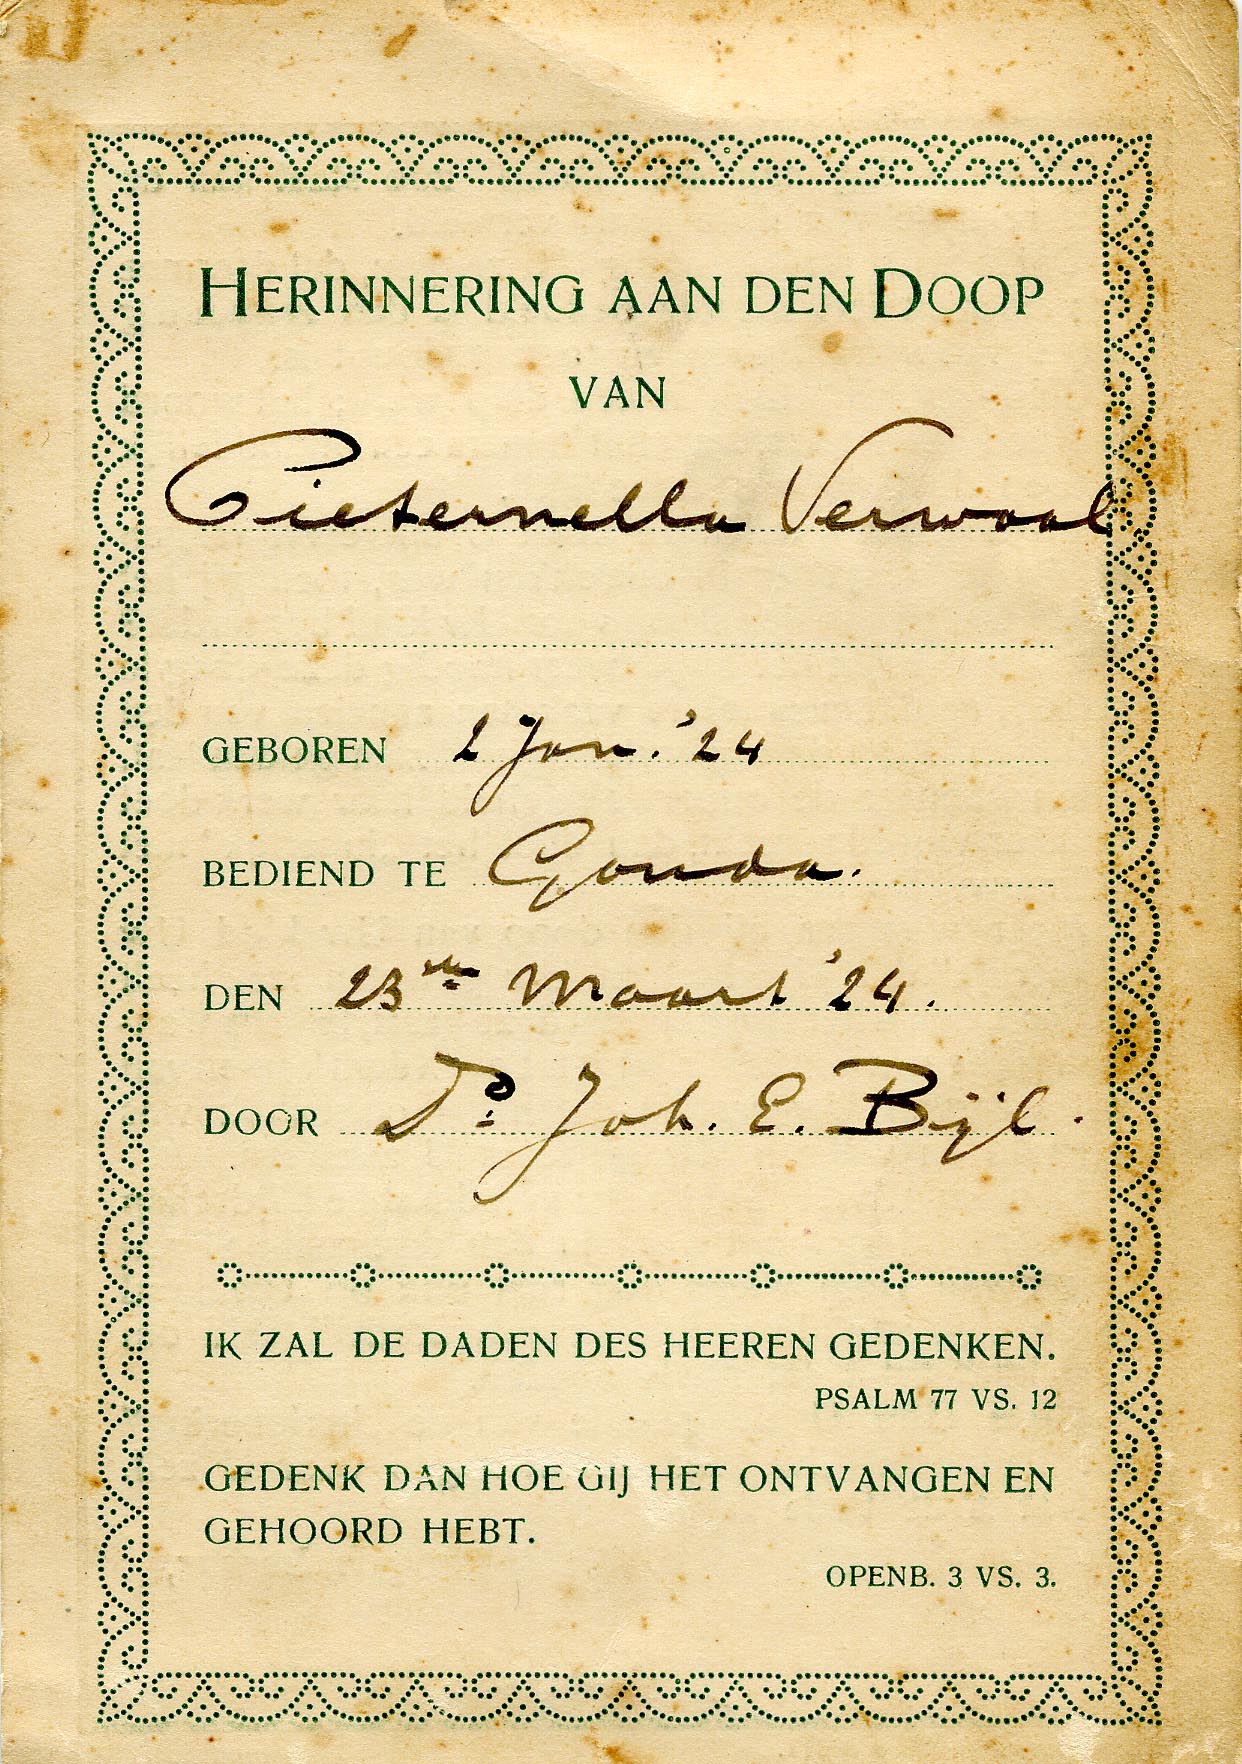 HERINNERING AAN DEN DOOP
VAN
Pieternella Verwaal
GEBOREN 2 Jan. '24
BEDIEND TE Gouda.
DEN 23ste Maart '24.
DOOR Ds Joh. E. Bijl.
IK ZAL DE DADEN DES HEEREN GEDENKEN.
PSALM 77 VS. 12
GEDENK DAN HOE GIJ HET ONTVANGEN EN
GEHOORD HEBT.
OPENB. 3 VS. 3.